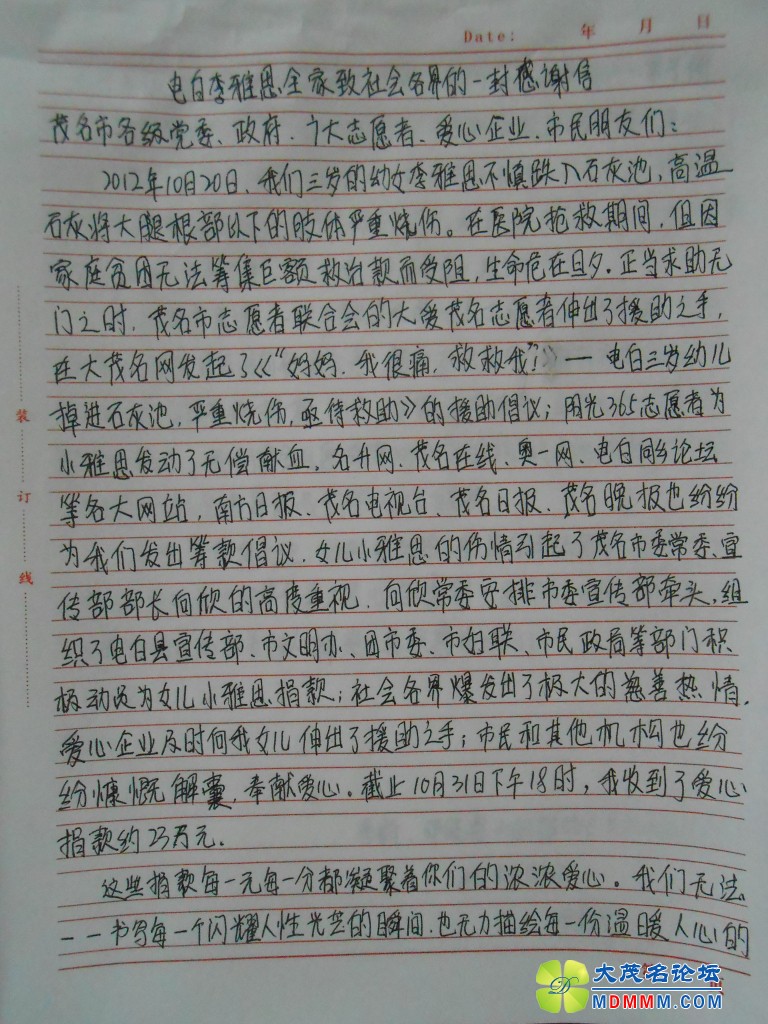 Date: 年 月 日
电白李雅思全家致社会各界的一封感谢信
茂名市各级党委、政府、广大志愿者、爱心企业、市民朋友们：
2012年10月20日，我们三岁的幼女李雅思不慎跌入石灰池，高温
石灰将大腿根部以下的肢体严重烧伤。在医院抢救期间，但因
家庭贫困无法筹集巨额救治款而受阻，生命危在旦夕。正当求助无
门之时，茂名市志愿者联合会的大爱茂名志愿者伸出了援助之手，
在大茂名网发起了《“妈妈，我很痛，救救我”！》— 电白三岁幼儿
掉进石灰池，严重烧伤，亟待救助》的援助倡议；阳光365志愿者为
小雅思发动了无偿献血，名升网、茂名在线、奥一网、电白同乡论坛
等各大网站，南方日报、茂名电视台、茂名日报、茂名晚报也纷纷
为我们发出筹款倡议。女儿小雅思的伤情引起了茂名市委常委、宣
传部部长向欣的高度重视，向欣常委安排市委宣传部牵头，组
织了电白县宣传部、市文明办、团市委、市妇联、市民政局等部门积
极动员为女儿小雅思捐款；社会各界爆发出了极大的慈善热情，
爱心企业及时向我女儿伸出了援助之手；市民和其他机构也纷
纷慷慨解囊，奉献爱心。截止10月31日下午18时，我收到了爱心
捐款约23万元.
这些捐款每一元每一分都凝聚着你们的浓浓爱心。我们无法
一一书写每一个闪耀人性光芒的瞬间，也无力描绘每一份温暖人心的
装
订
线
大茂名论坛
MDMMM.COM